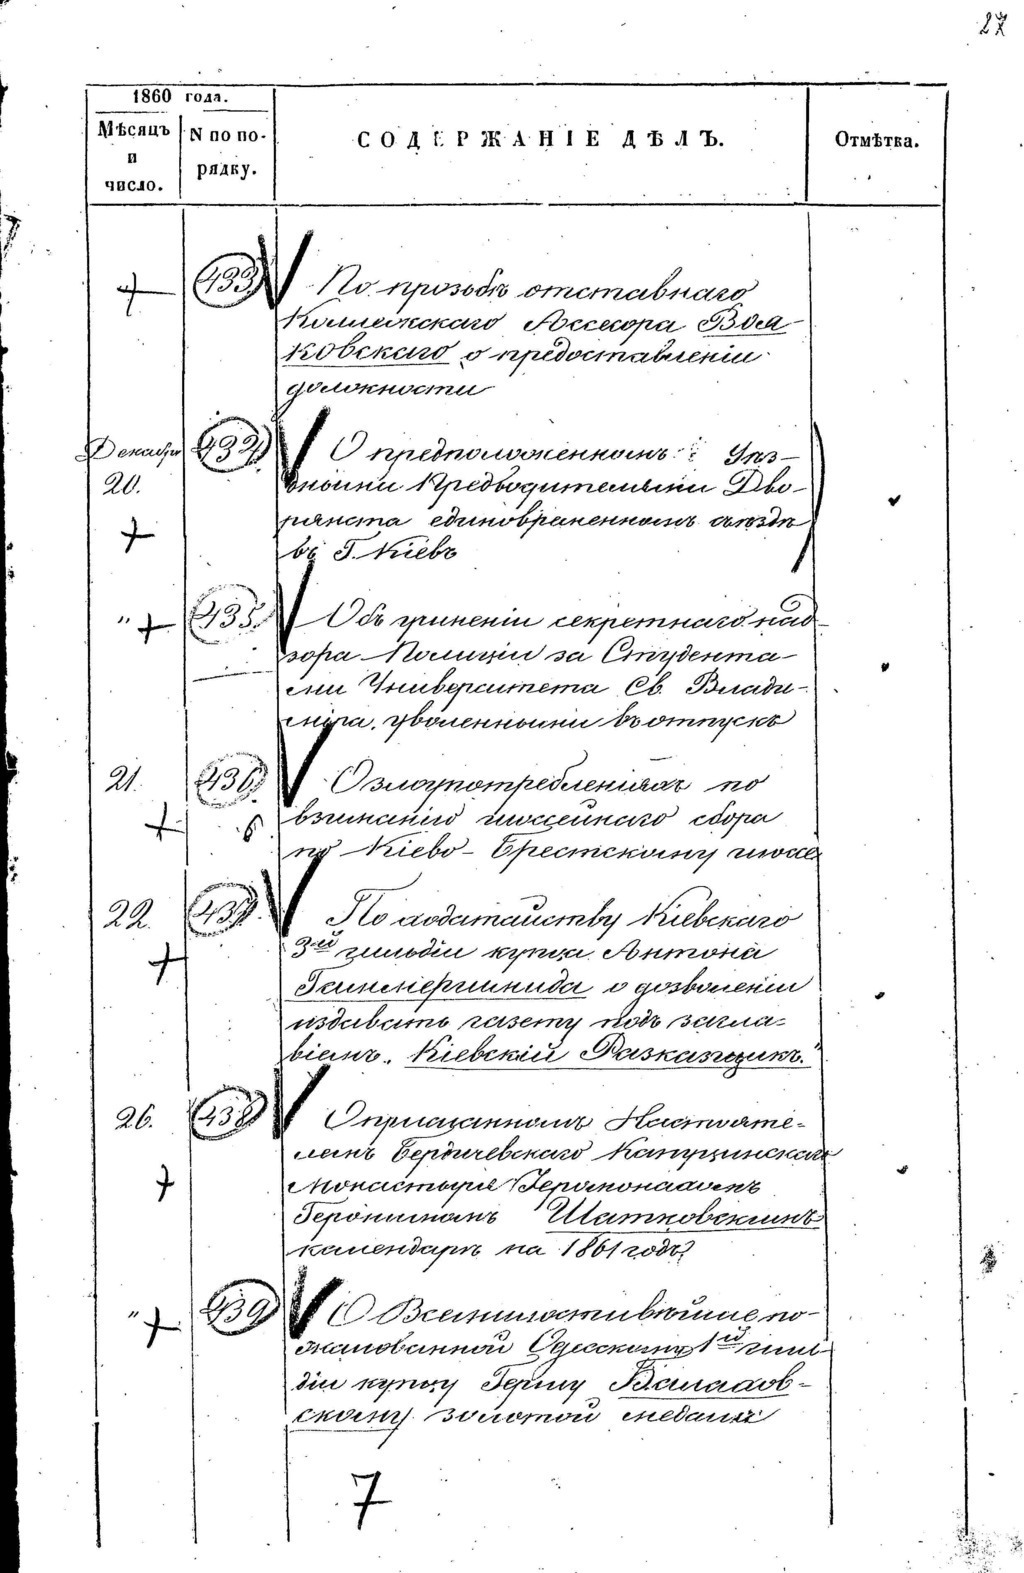 27
1860 года.
Мѣсяцъ и число.
N по порядку.
СОДЕРЖАНІЕ ДѢЛЪ.
Отмѣтка.
433 По прозьбѣ отставнаго
Коллежскаго Ассесора
ковскаго о предоставленіи
должности
Декабря 434 О предположенномъ Уѣз-
20. дными Предводителями Дво-
рянства единовременномъ съѣздѣ
въ Г. Кіевѣ
" 435 Объ учиненіи секретнаго над
зора Полиціи за Студента-
ми Университета Св. Влади-
міра, уволенными въ отпускъ
21. 436 О злоупотребленіяхъ по
6 взиманію шоссейнаго сбора
по Кіево-Брестскому шоссе
22. 437 По ходатайству Кіевскаго
3ей гильдіи купца Антона
Гаммершмида о дозволеніи
издавать газету подъ загла-
віемъ „Кіевскій Разкащикъ."
26. 438 О присланномъ Настояте-
лемъ Бердичевскаго Капуцинскаго
Монастыря Іеромонахомъ
Іеронимомъ Шатковскимъ
календарѣ на 1861 годъ
" 439 О Всемилостивѣйше по-
жалованной Одесскому 1й гиль-
діи купцу Герцу
скому золотой медали
7